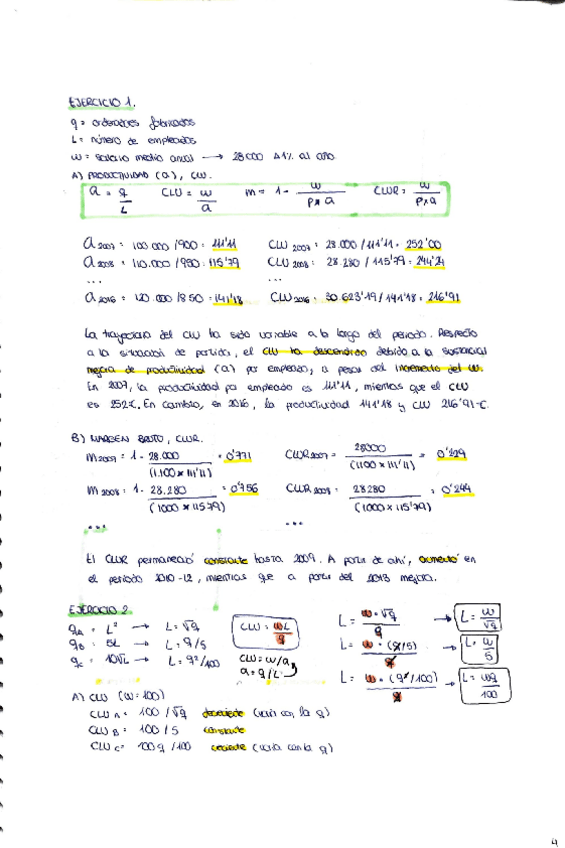 EJERCICIO 1.
q = ordenadores fabricados
L = número de empleados
w = salario medio anual → 28000 Δ1% al año
A) PRODUCTIVIDAD (a), CLU.
a = q / L   CLU = w / a   m = 1 - w / p x a   CLUR = w / p x a
a 2007 = 100.000 / 900 = 111'11   CLU 2007 = 28.000 / 111'11 = 252'00
a 2008 = 110.000 / 950 = 115'79   CLU 2008 = 28.280 / 115'79 = 244'24
...   ...
a 2016 = 120.000 / 850 = 141'18   CLU 2016 = 30.623'19 / 141'18 = 216'91
La trayectoria del CLU ha sido variable a lo largo del periodo. Respecto
a la situación de partida, el CLU ha descendido debido a la sustancial
mejora de productividad (a) por empleado, a pesar del incremento del w.
En 2007, la productividad por empleado es 111'11, mientras que el CLU
es 252€. En cambio, en 2016, la productividad 141'18 y CLU 216'91€.
B) MARGEN BRUTO, CLUR.
m 2007 = 1 - 28.000 / (1.100 x 111'11) = 0'771   CLUR 2007 = 28000 / (1.100 x 111'11) = 0'229
m 2008 = 1 - 28.280 / (1000 x 115'79) = 0'756   CLUR 2008 = 28280 / (1000 x 115'79) = 0'244
...   ...
El CLUR permaneció constante hasta 2009. A partir de ahí, aumentó en
el periodo 2010-12, mientras que a partir del 2013 mejora.
EJERCICIO 2
qA = L² → L = √q
qB = 5L → L = q/5
qC = 10√L → L = q²/100
CLU = wL / q
CLU = w/a
a = q/L
L = w·√q / q → L = w / √q
L = w·(q/5) / q → L = w / 5
L = w·(q²/100) / q → L = wq / 100
A) CLU (w=100)
CLU A = 100 / √q decreciente (varía con la q)
CLU B = 100 / 5 constante
CLU C = 100q / 100 creciente (varía con la q)
4